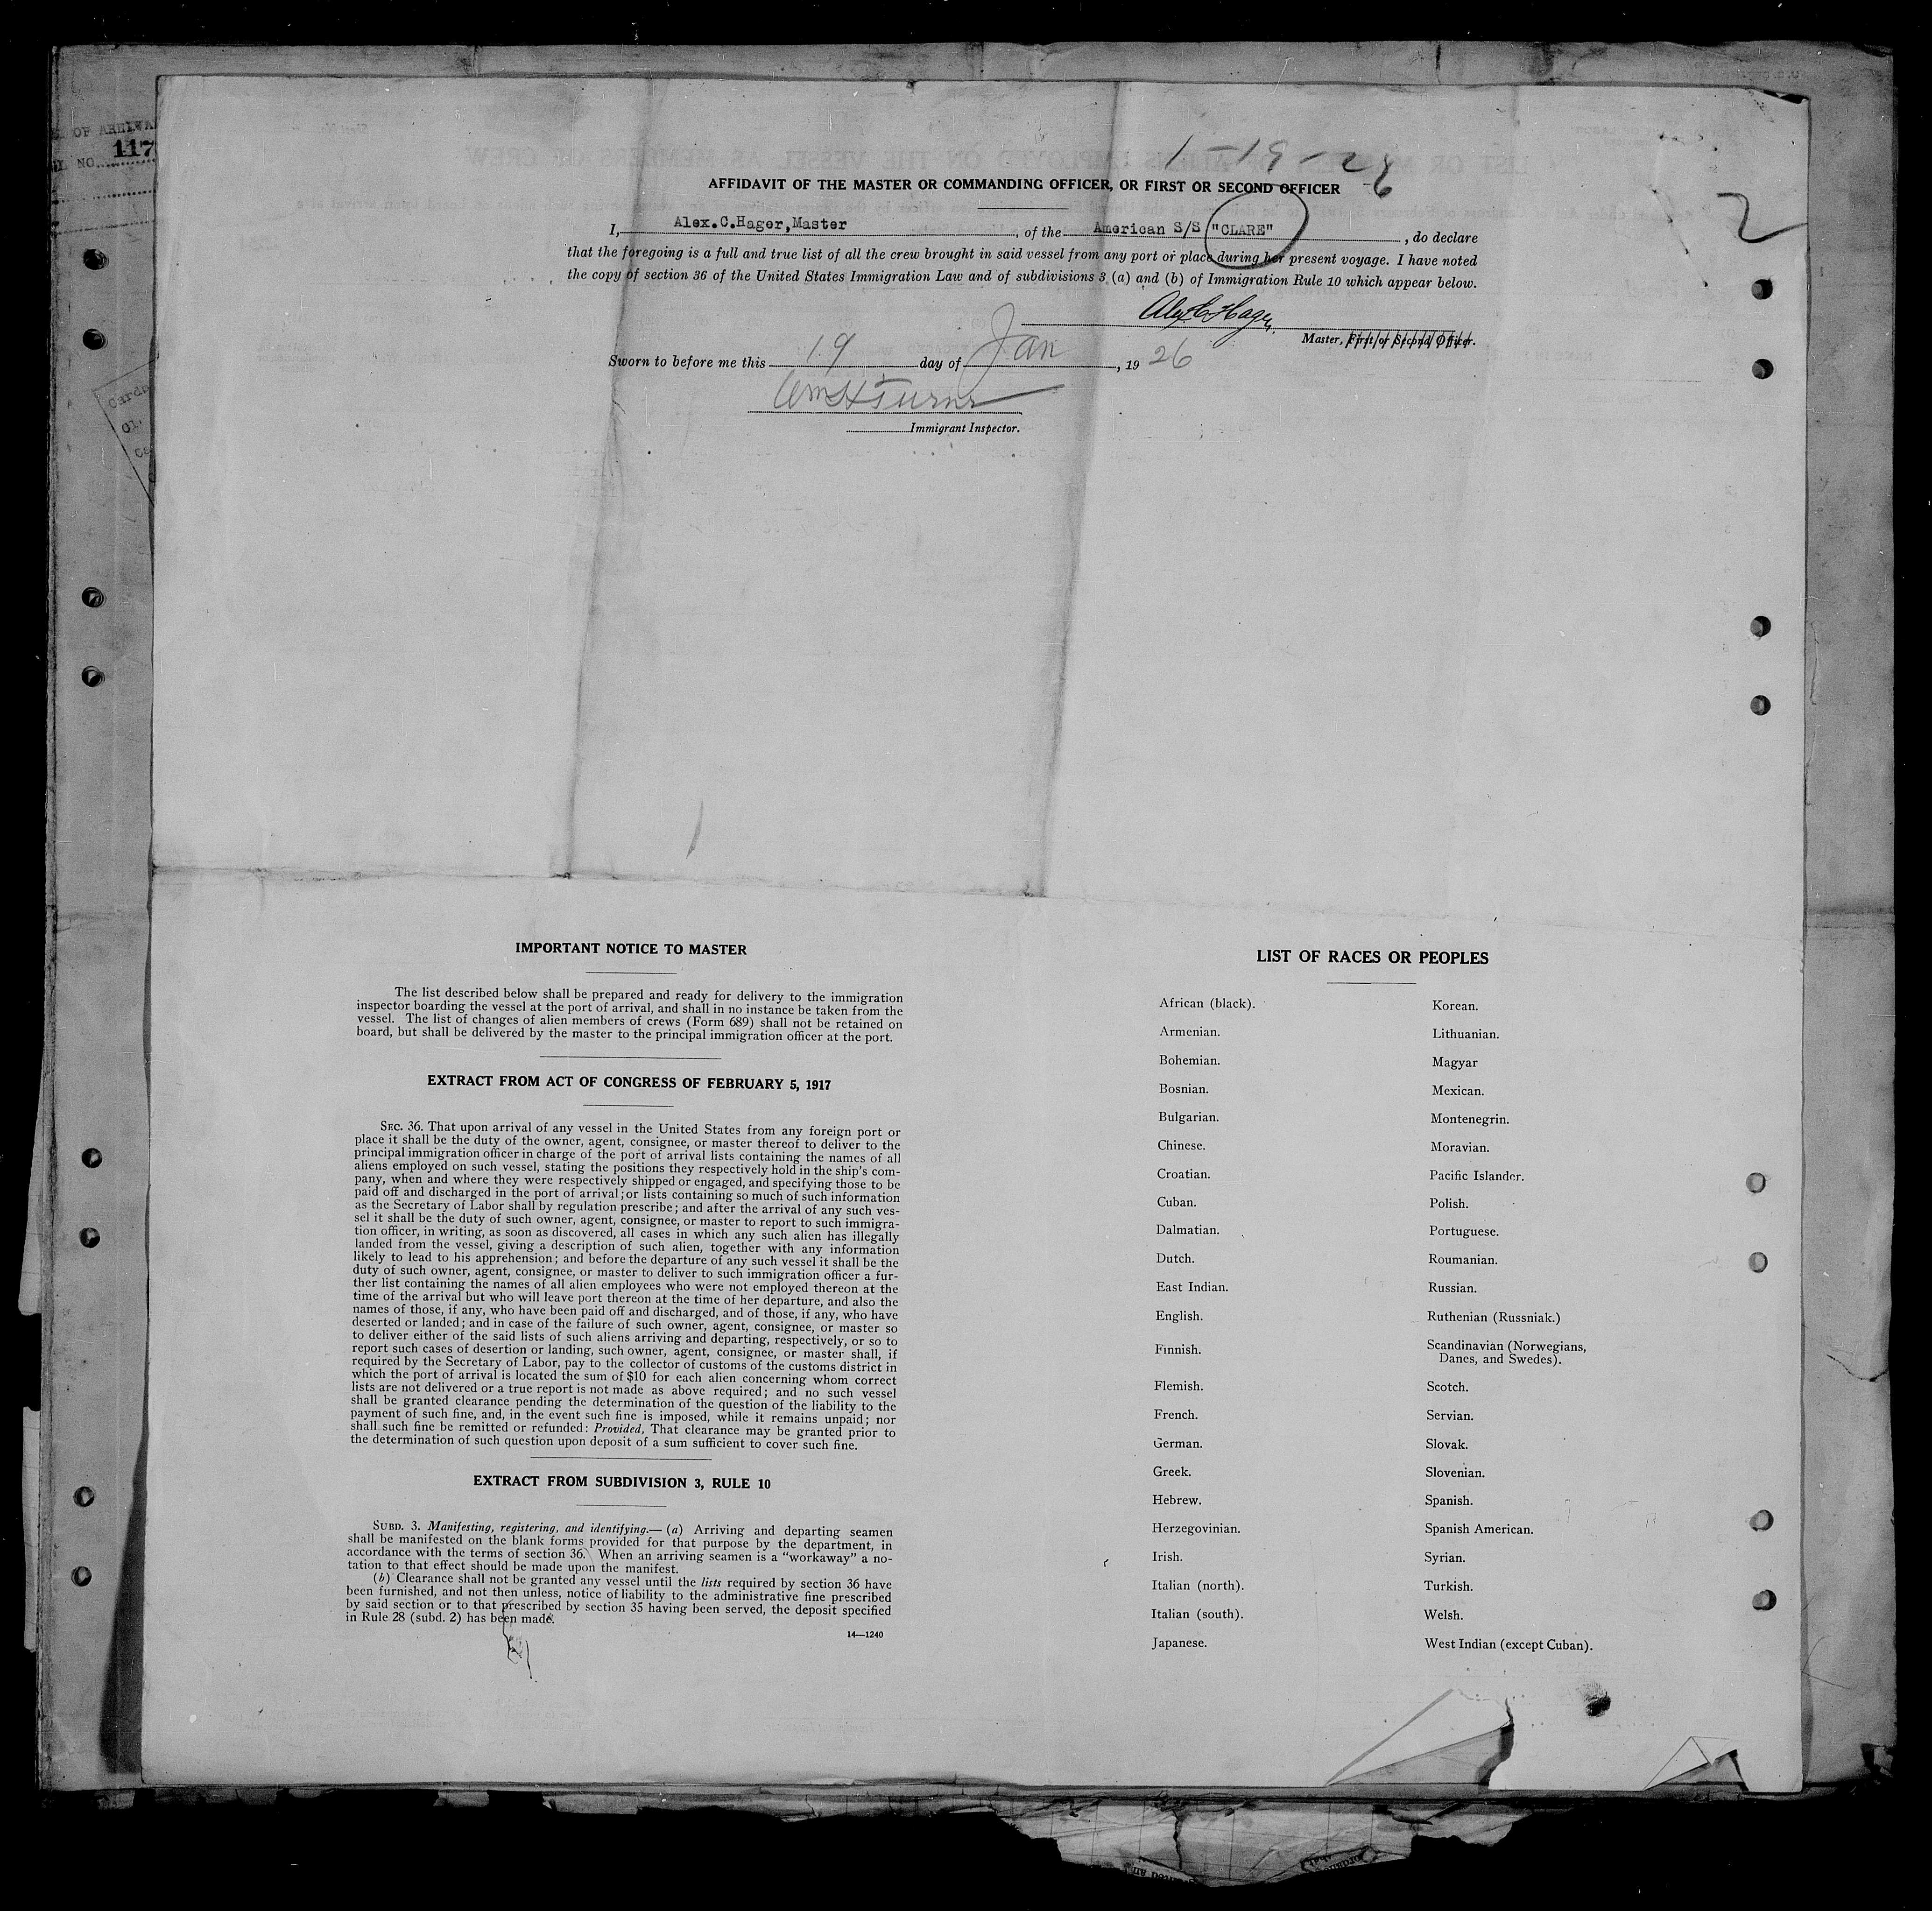 OF ARRIVA
NO. 117
1-19-26
2
AFFIDAVIT OF THE MASTER OR COMMANDING OFFICER, OR FIRST OR SECOND OFFICER
I, Alex.C.Hager,Master, of the American S/S "CLARE", do declare
that the foregoing is a full and true list of all the crew brought in said vessel from any port or place during her present voyage. I have noted
the copy of section 36 of the United States Immigration Law and of subdivisions 3 (a) and (b) of Immigration Rule 10 which appear below.
Alex C Hager
Master, First or Second Officer.
Sworn to before me this 19 day of Jan, 1926
Wm H Turner
Immigrant Inspector.
IMPORTANT NOTICE TO MASTER
The list described below shall be prepared and ready for delivery to the immigration
inspector boarding the vessel at the port of arrival, and shall in no instance be taken from the
vessel. The list of changes of alien members of crews (Form 689) shall not be retained on
board, but shall be delivered by the master to the principal immigration officer at the port.
EXTRACT FROM ACT OF CONGRESS OF FEBRUARY 5, 1917
SEC. 36. That upon arrival of any vessel in the United States from any foreign port or
place it shall be the duty of the owner, agent, consignee, or master thereof to deliver to the
principal immigration officer in charge of the port of arrival lists containing the names of all
aliens employed on such vessel, stating the positions they respectively hold in the ship's com-
pany, when and where they were respectively shipped or engaged, and specifying those to be
paid off and discharged in the port of arrival; or lists containing so much of such information
as the Secretary of Labor shall by regulation prescribe; and after the arrival of any such ves-
sel it shall be the duty of such owner, agent, consignee, or master to report to such immigra-
tion officer, in writing, as soon as discovered, all cases in which any such alien has illegally
landed from the vessel, giving a description of such alien, together with any information
likely to lead to his apprehension; and before the departure of any such vessel it shall be the
duty of such owner, agent, consignee, or master to deliver to such immigration officer a fur-
ther list containing the names of all alien employees who were not employed thereon at the
time of the arrival but who will leave port thereon at the time of her departure, and also the
names of those, if any, who have been paid off and discharged, and of those, if any, who have
deserted or landed; and in case of the failure of such owner, agent, consignee, or master so
to deliver either of the said lists of such aliens arriving and departing, respectively, or so to
report such cases of desertion or landing, such owner, agent, consignee, or master shall, if
required by the Secretary of Labor, pay to the collector of customs of the customs district in
which the port of arrival is located the sum of $10 for each alien concerning whom correct
lists are not delivered or a true report is not made as above required; and no such vessel
shall be granted clearance pending the determination of the question of the liability to the
payment of such fine, and, in the event such fine is imposed, while it remains unpaid; nor
shall such fine be remitted or refunded: Provided, That clearance may be granted prior to
the determination of such question upon deposit of a sum sufficient to cover such fine.
EXTRACT FROM SUBDIVISION 3, RULE 10
SUBD. 3. Manifesting, registering, and identifying.—(a) Arriving and departing seamen
shall be manifested on the blank forms provided for that purpose by the department, in
accordance with the terms of section 36. When an arriving seamen is a "workaway" a no-
tation to that effect should be made upon the manifest.
(b) Clearance shall not be granted any vessel until the lists required by section 36 have
been furnished, and not then unless, notice of liability to the administrative fine prescribed
by said section or to that prescribed by section 35 having been served, the deposit specified
in Rule 28 (subd. 2) has been made.
14—1240
LIST OF RACES OR PEOPLES
African (black).
Armenian.
Bohemian.
Bosnian.
Bulgarian.
Chinese.
Croatian.
Cuban.
Dalmatian.
Dutch.
East Indian.
English.
Finnish.
Flemish.
French.
German.
Greek.
Hebrew.
Herzegovinian.
Irish.
Italian (north).
Italian (south).
Japanese.
Korean.
Lithuanian.
Magyar
Mexican.
Montenegrin.
Moravian.
Pacific Islander.
Polish.
Portuguese.
Roumanian.
Russian.
Ruthenian (Russniak.)
Scandinavian (Norwegians,
Danes, and Swedes).
Scotch.
Servian.
Slovak.
Slovenian.
Spanish.
Spanish American.
Syrian.
Turkish.
Welsh.
West Indian (except Cuban).